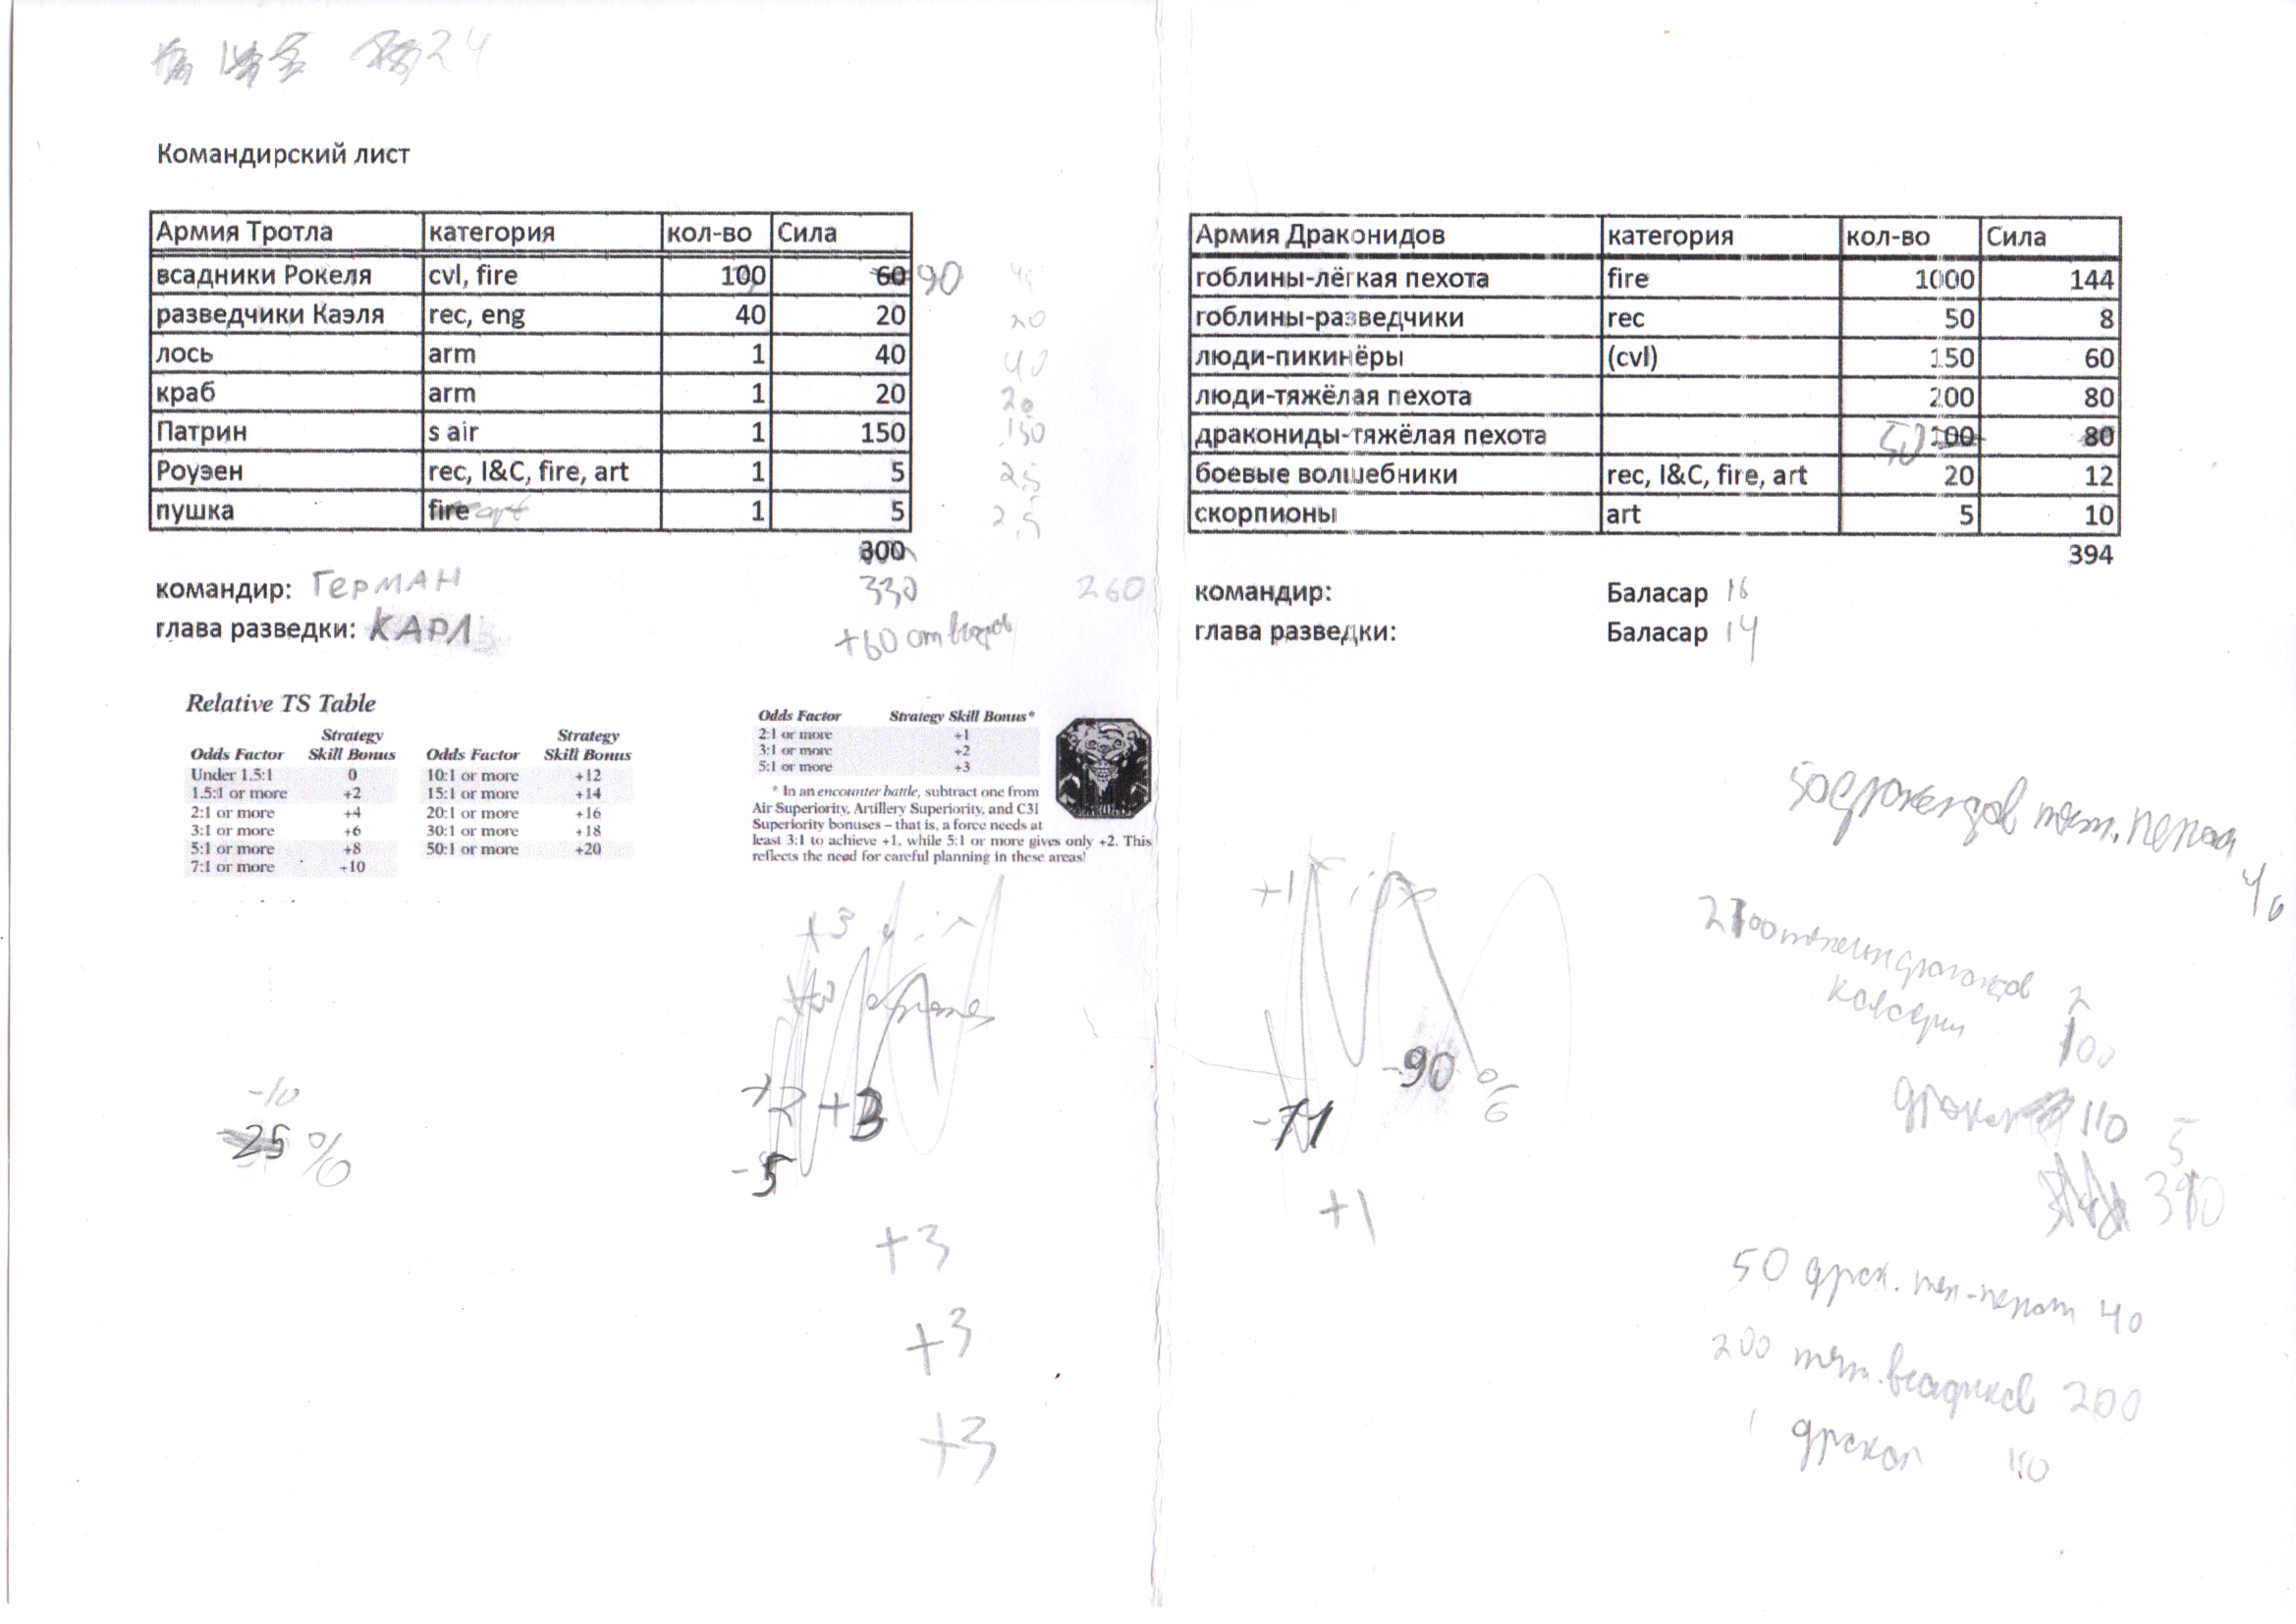 24
Командирский лист
Армия Тротла категория кол-во Сила
всадники Рокеля cvl, fire 100 60 90
разведчики Каэля rec, eng 40 20 20
лось arm 1 40 40
краб arm 1 20 20
Патрин s air 1 150 150
Роуэн rec, I&C, fire, art 1 5 2,5
пушка fire art 1 5 2,5
300
330 260
командир: Герман
глава разведки: КАРЛ
+60 от
Армия Драконидов категория кол-во Сила
гоблины-лёгкая пехота fire 1000 144
гоблины-разведчики rec 50 8
люди-пикинёры (cvl) 150 60
люди-тяжёлая пехота 200 80
дракониды-тяжёлая пехота 50 100 80
боевые волшебники rec, I&C, fire, art 20 12
скорпионы art 5 10
394
командир: Баласар 16
глава разведки: Баласар 14
Relative TS Table
Odds Factor Strategy Skill Bonus Odds Factor Strategy Skill Bonus
Under 1.5:1 0 10:1 or more +12
1.5:1 or more +2 15:1 or more +14
2:1 or more +4 20:1 or more +16
3:1 or more +6 30:1 or more +18
5:1 or more +8 50:1 or more +20
7:1 or more +10
Odds Factor Strategy Skill Bonus*
2:1 or more +1
3:1 or more +2
5:1 or more +3
* In an encounter battle, subtract one from
Air Superiority, Artillery Superiority, and C3I
Superiority bonuses – that is, a force needs at
least 3:1 to achieve +1, while 5:1 or more gives only +2. This
reflects the need for careful planning in these areas!
-10
-25 %
+3
+2 +3
-5
+3
+3
+3
+1
-90 %
-71
+1
50 драконидов тяж. пехота
40
100
110
5
310
50 драк. тяж-пехот 40
200 тяж. всадников 200
1 дракон 110